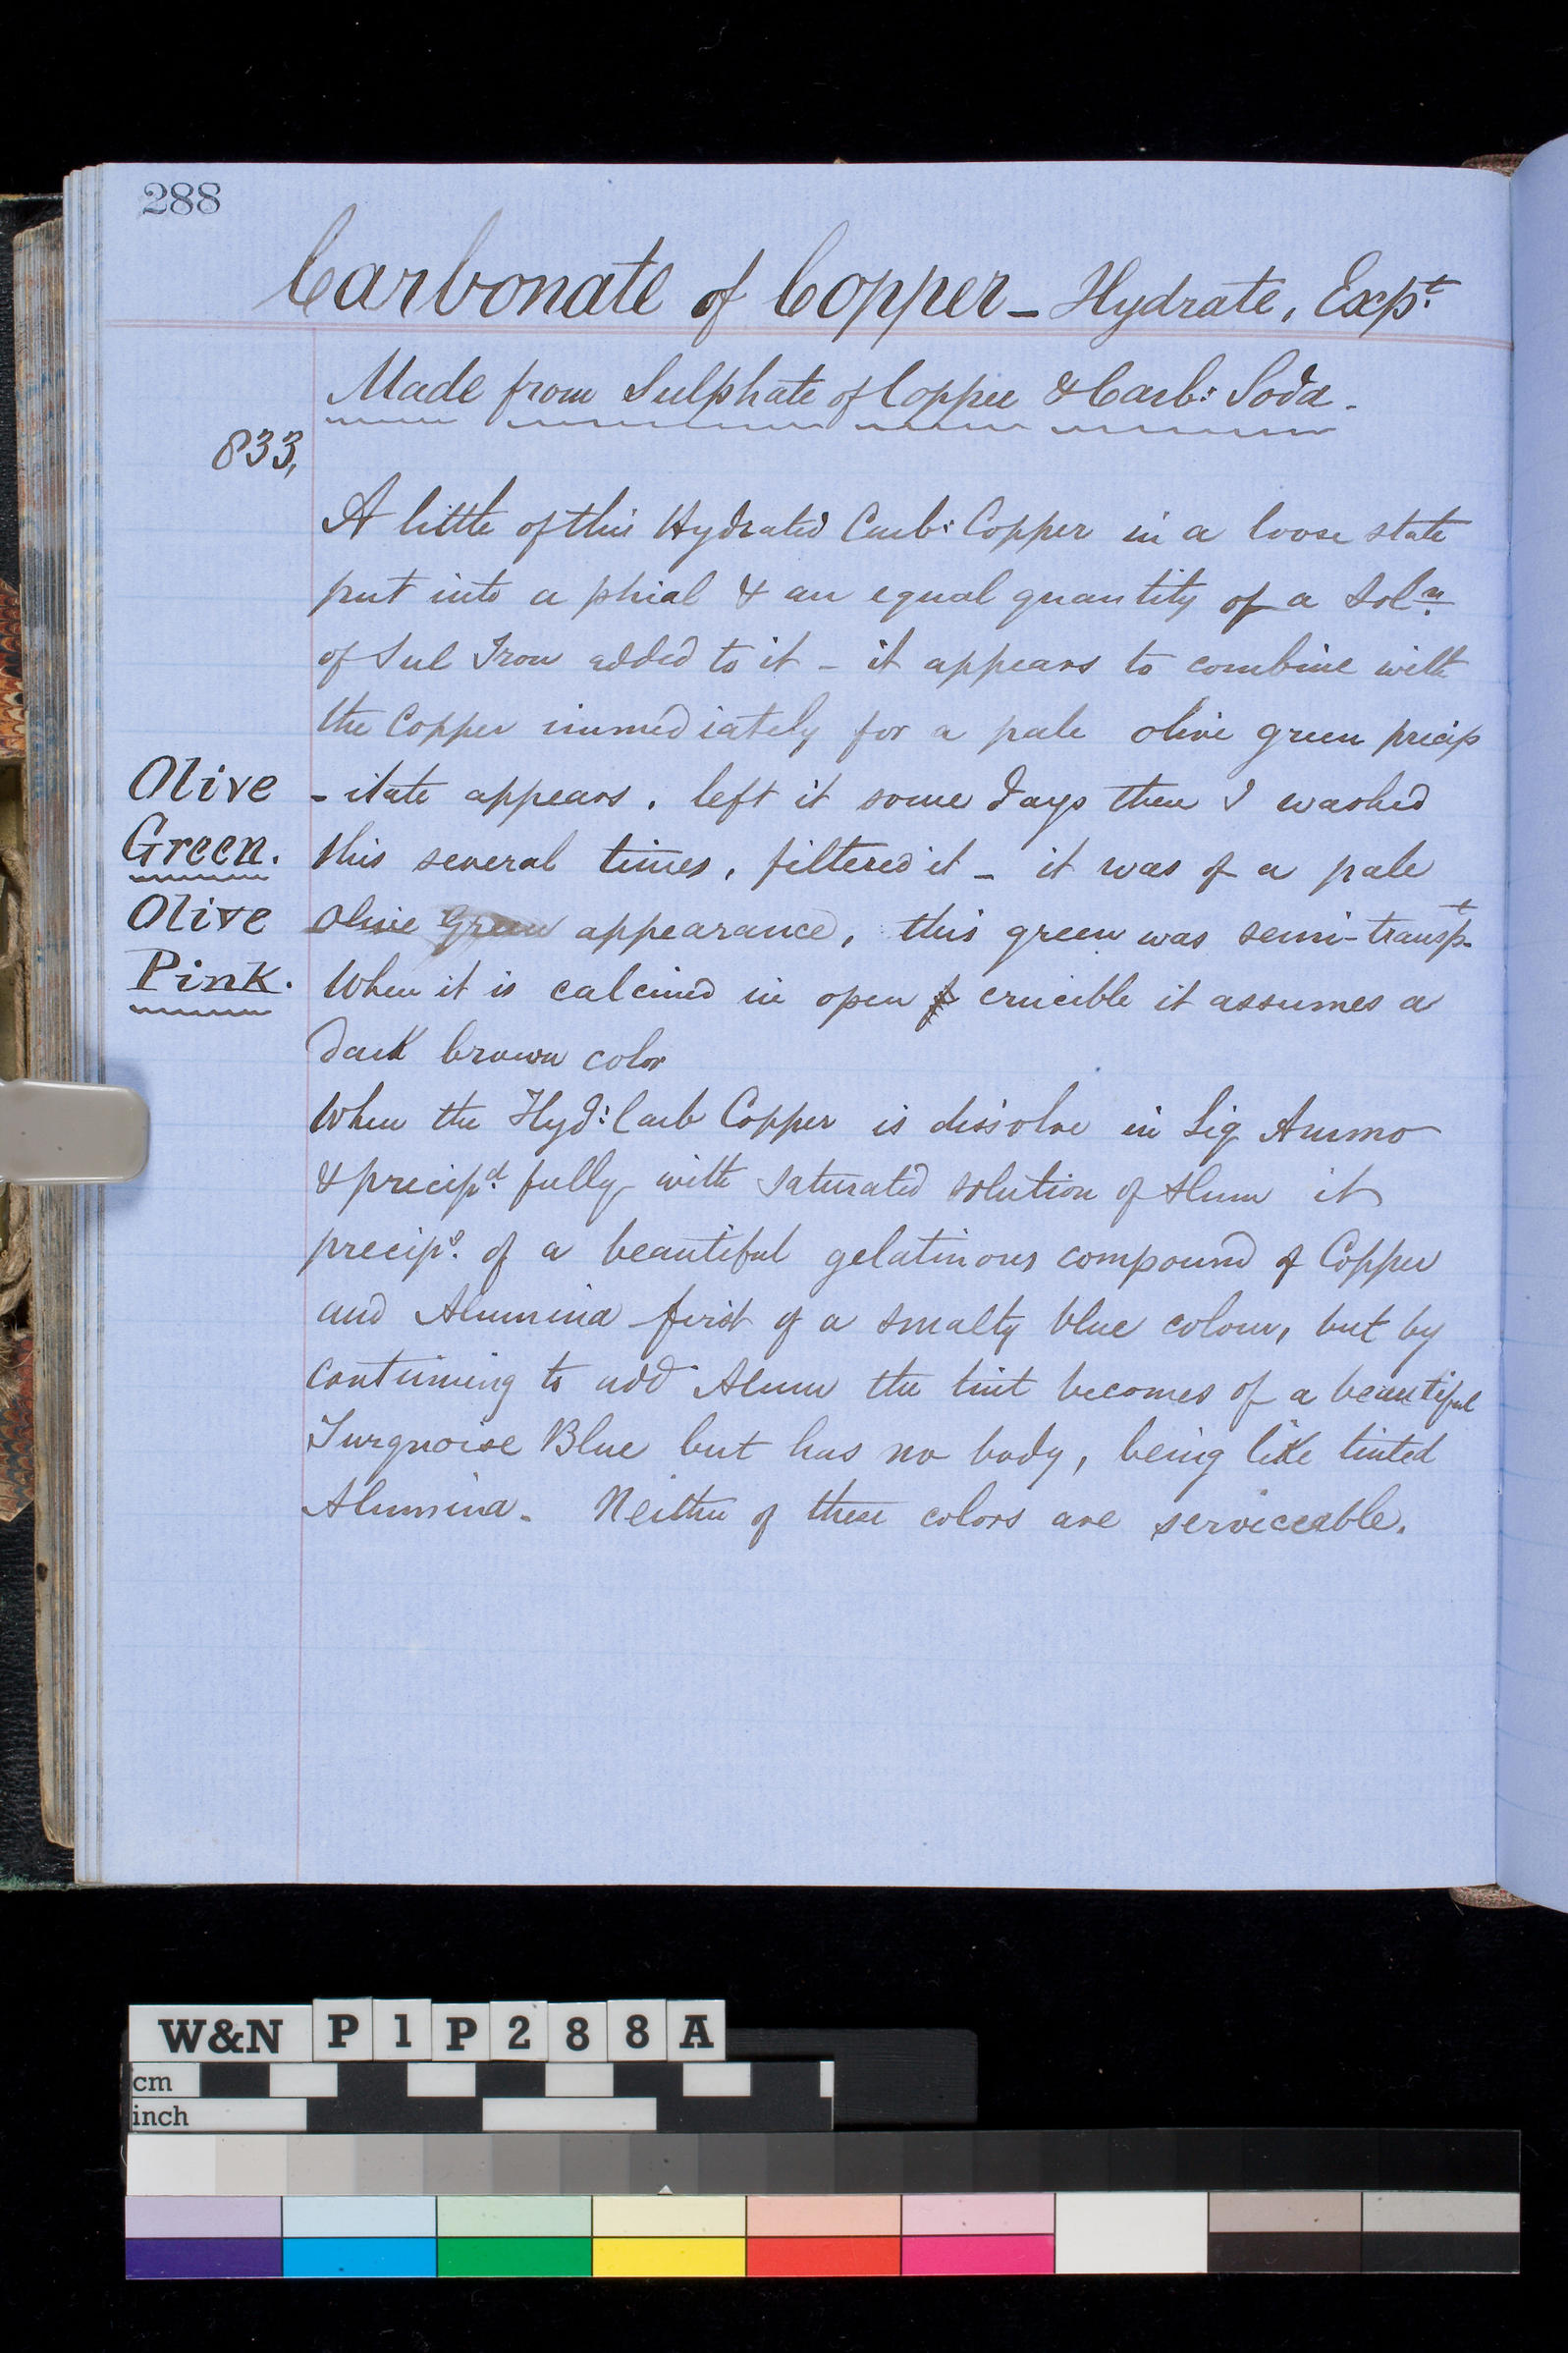 288
Carbonate of Copper - Hydrate, Expt.
Made from Sulphate of Copper & Carb: Soda.
833,
A little of this Hydrated Carb: Copper in a loose state
put into a phial & an equal quantity of a Soln.
of Sul Iron added to it - it appears to combine with
the Copper immediately for a pale olive green precip
Olive
- itate appears. left it some days then I washed
Green.
this several times, filtered it - it was of a pale
Olive
Olive Green appearance, this green was semi-transpt.
Pink.
When it is calcined in open crucible it assumes a
dark brown color
When the Hyd: Carb Copper is dissolve in Liq Ammo
& precipd. fully with saturated solution of Alum it
precips. of a beautiful gelatinous compound of Copper
and Alumina first of a smalty blue colour, but by
continuing to add Alum the tint becomes of a beautiful
Turquoise Blue but has no body, being like tinted
Alumina. Neither of these colors are serviceable.
W&N P1P288A
cm
inch